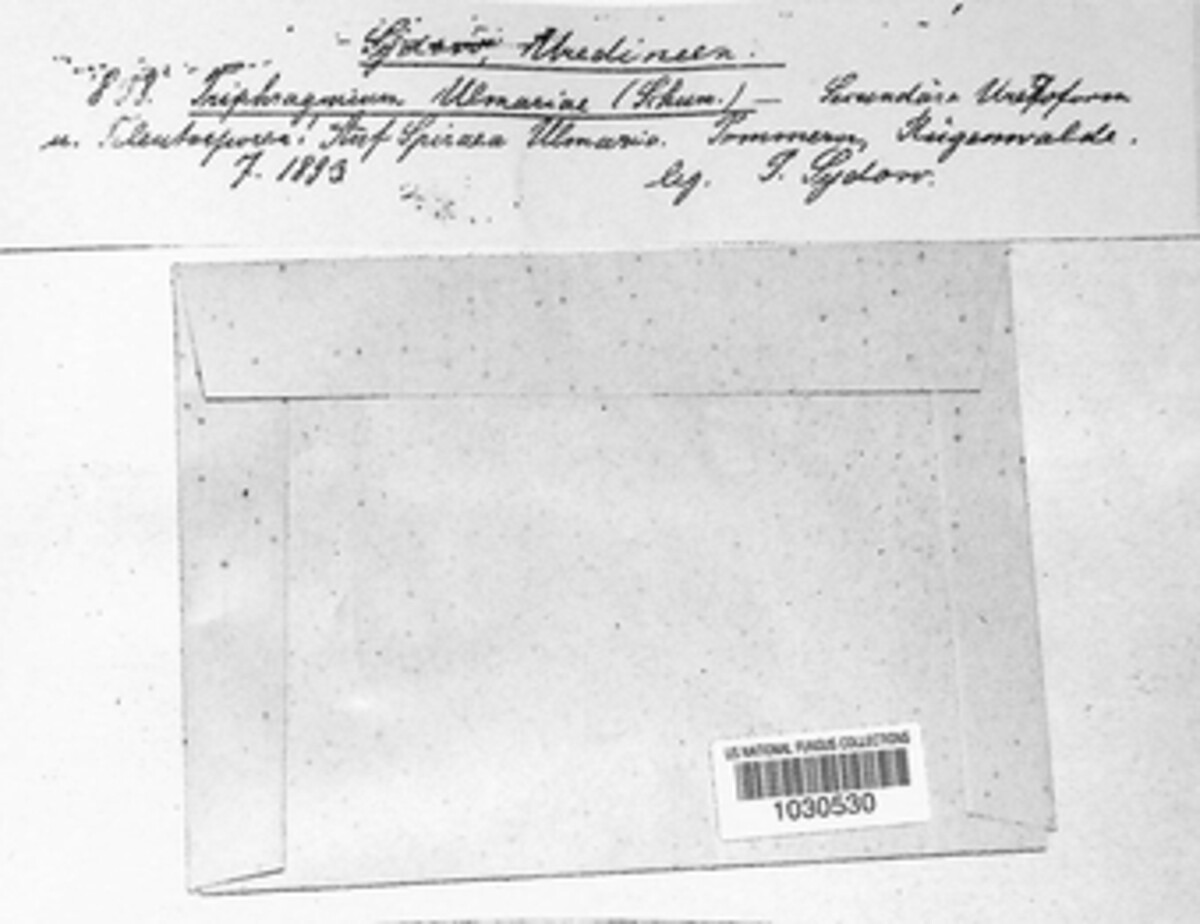 Sydow, Uredineen.
899. Triphragmium Ulmariae (Schum.) — Secundäre Uredoform
u. Teleutosporen! Auf Spiraea Ulmaria. Pommern, Rügenwalde.
7. 1893 leg. P. Sydow.
US NATIONAL FUNGUS COLLECTIONS
1030530